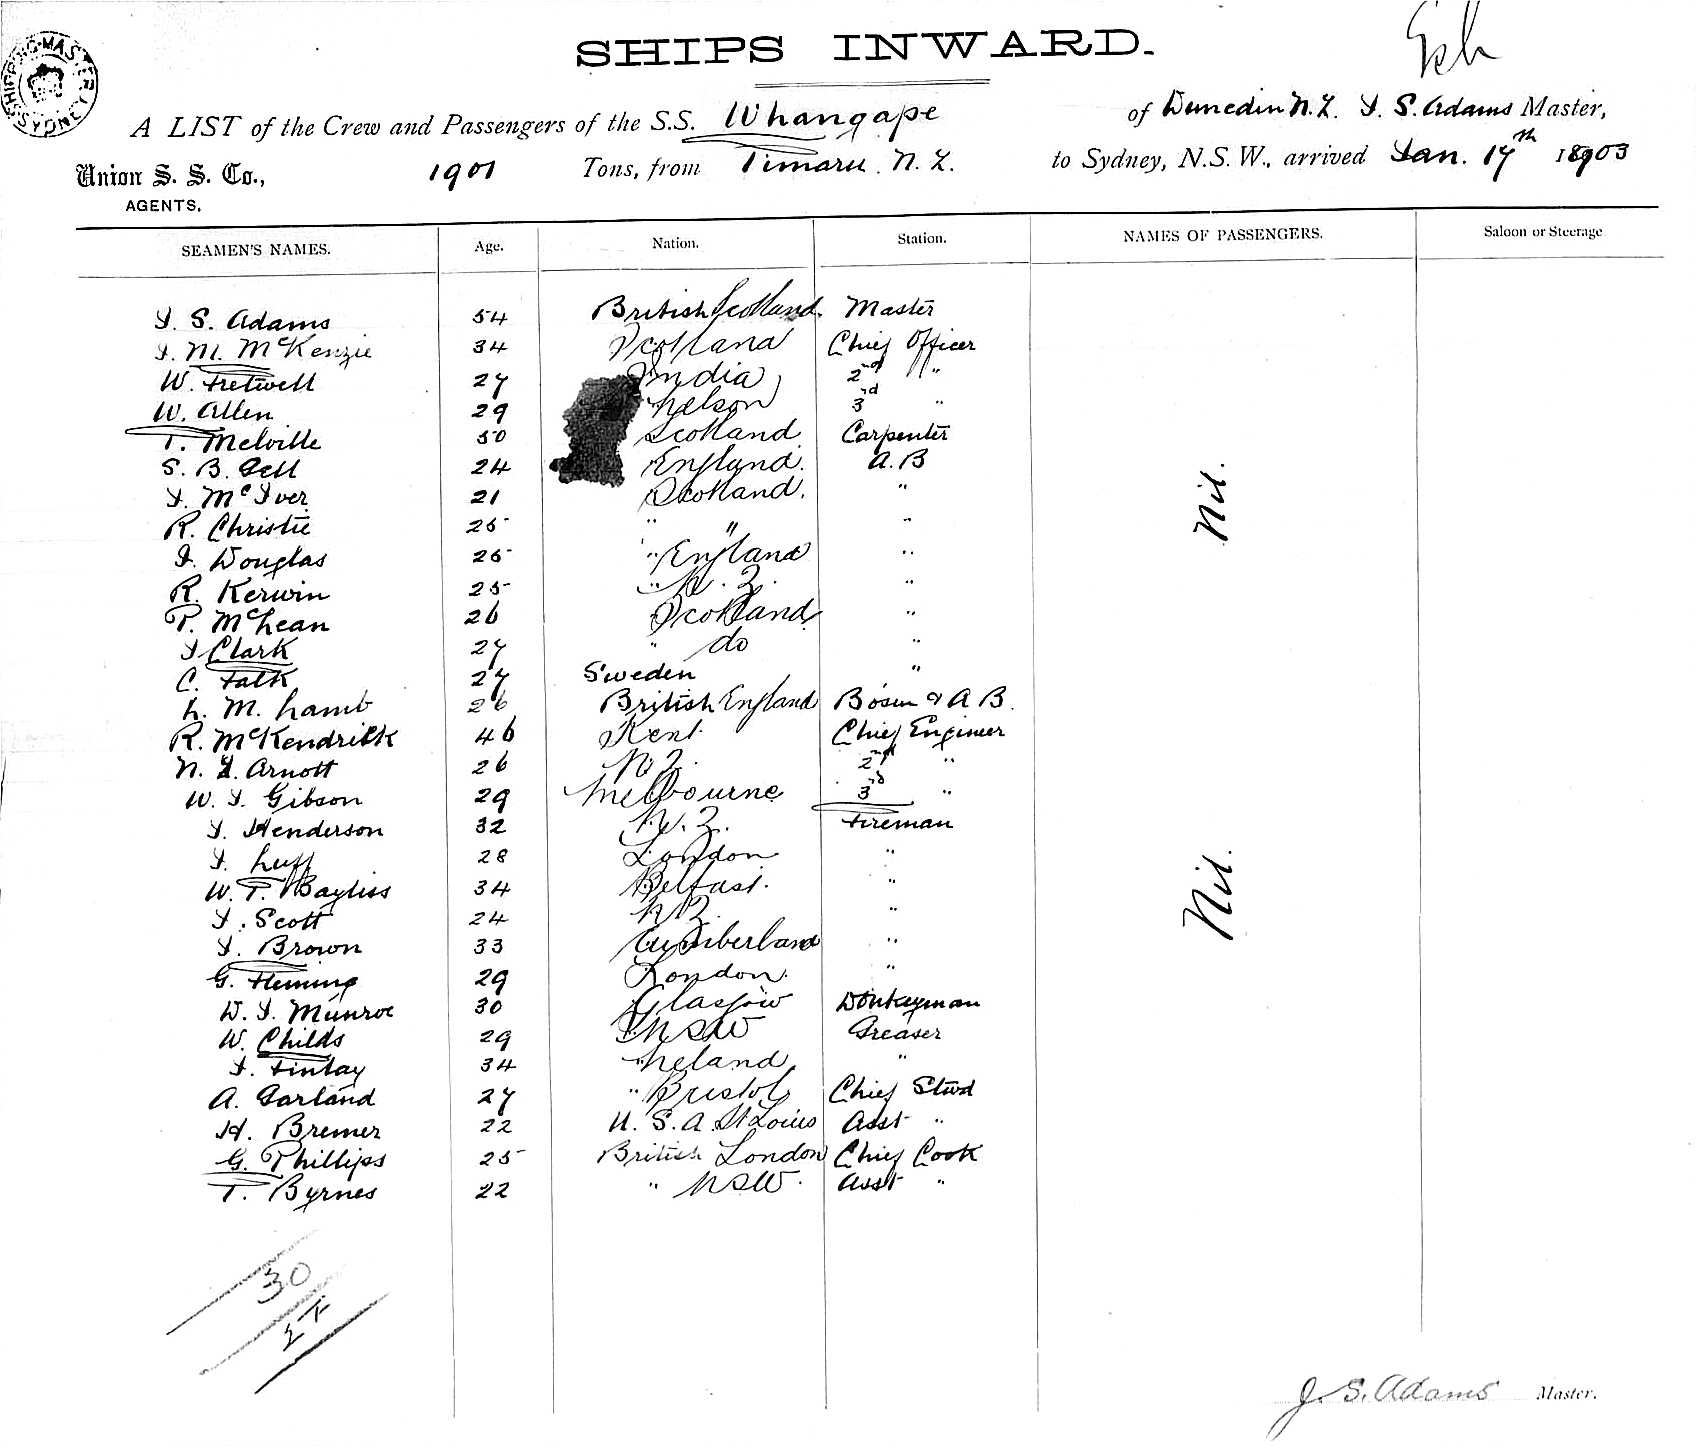 SHIPS INWARD.
A LIST of the Crew and Passengers of the S.S. Whangape of Dunedin N.Z. J. S. Adams Master,
Union S. S. Co., AGENTS. 1901 Tons, from Timaru. N. Z. to Sydney, N.S.W., arrived Jan. 17th 1903
SEAMEN'S NAMES. Age. Nation. Station. NAMES OF PASSENGERS. Saloon or Steerage
J. S. Adams 54 British Scotland. Master
J. M. McKenzie 34 Scotland Chief Officer
W. Fretwell 27 India 2nd "
W. Allen 29 Nelson 3rd "
T. Melville 50 Scotland Carpenter
S. B. Gell 24 England. A.B
J. McIver 21 Scotland. "
R. Christie 25 " " "
J. Douglas 25 " England "
R. Kerwin 25 " N. Z. "
P. McLean 26 Scotland "
J Clark 27 " do "
C. Falk 27 Sweden "
L. M. Lamb 26 British England Bosun & A B.
R. McKendrick 46 Kent Chief Engineer
N. L. Arnott 26 N Z. 2nd "
W. J. Gibson 29 Melbourne 3rd "
J. Henderson 32 N. Z. Fireman
J. Luff 28 London "
W. T. Bayliss 34 Belfast. "
J. Scott 24 N Z. "
J. Brown 33 Cumberland "
G. Fleming 29 London. "
W. J. Munroe 30 Glasgow Donkeyman
W. Childs 29 NSW Greaser
J. Finlay 34 " Ireland "
A. Garland 27 " Bristol Chief Stwd
H. Bremer 22 U. S. A. St Louis Asst "
G. Phillips 25 British London Chief Cook
T. Byrnes 22 " NSW. Asst "
Nil.
Nil.
30
J. S. Adams Master.